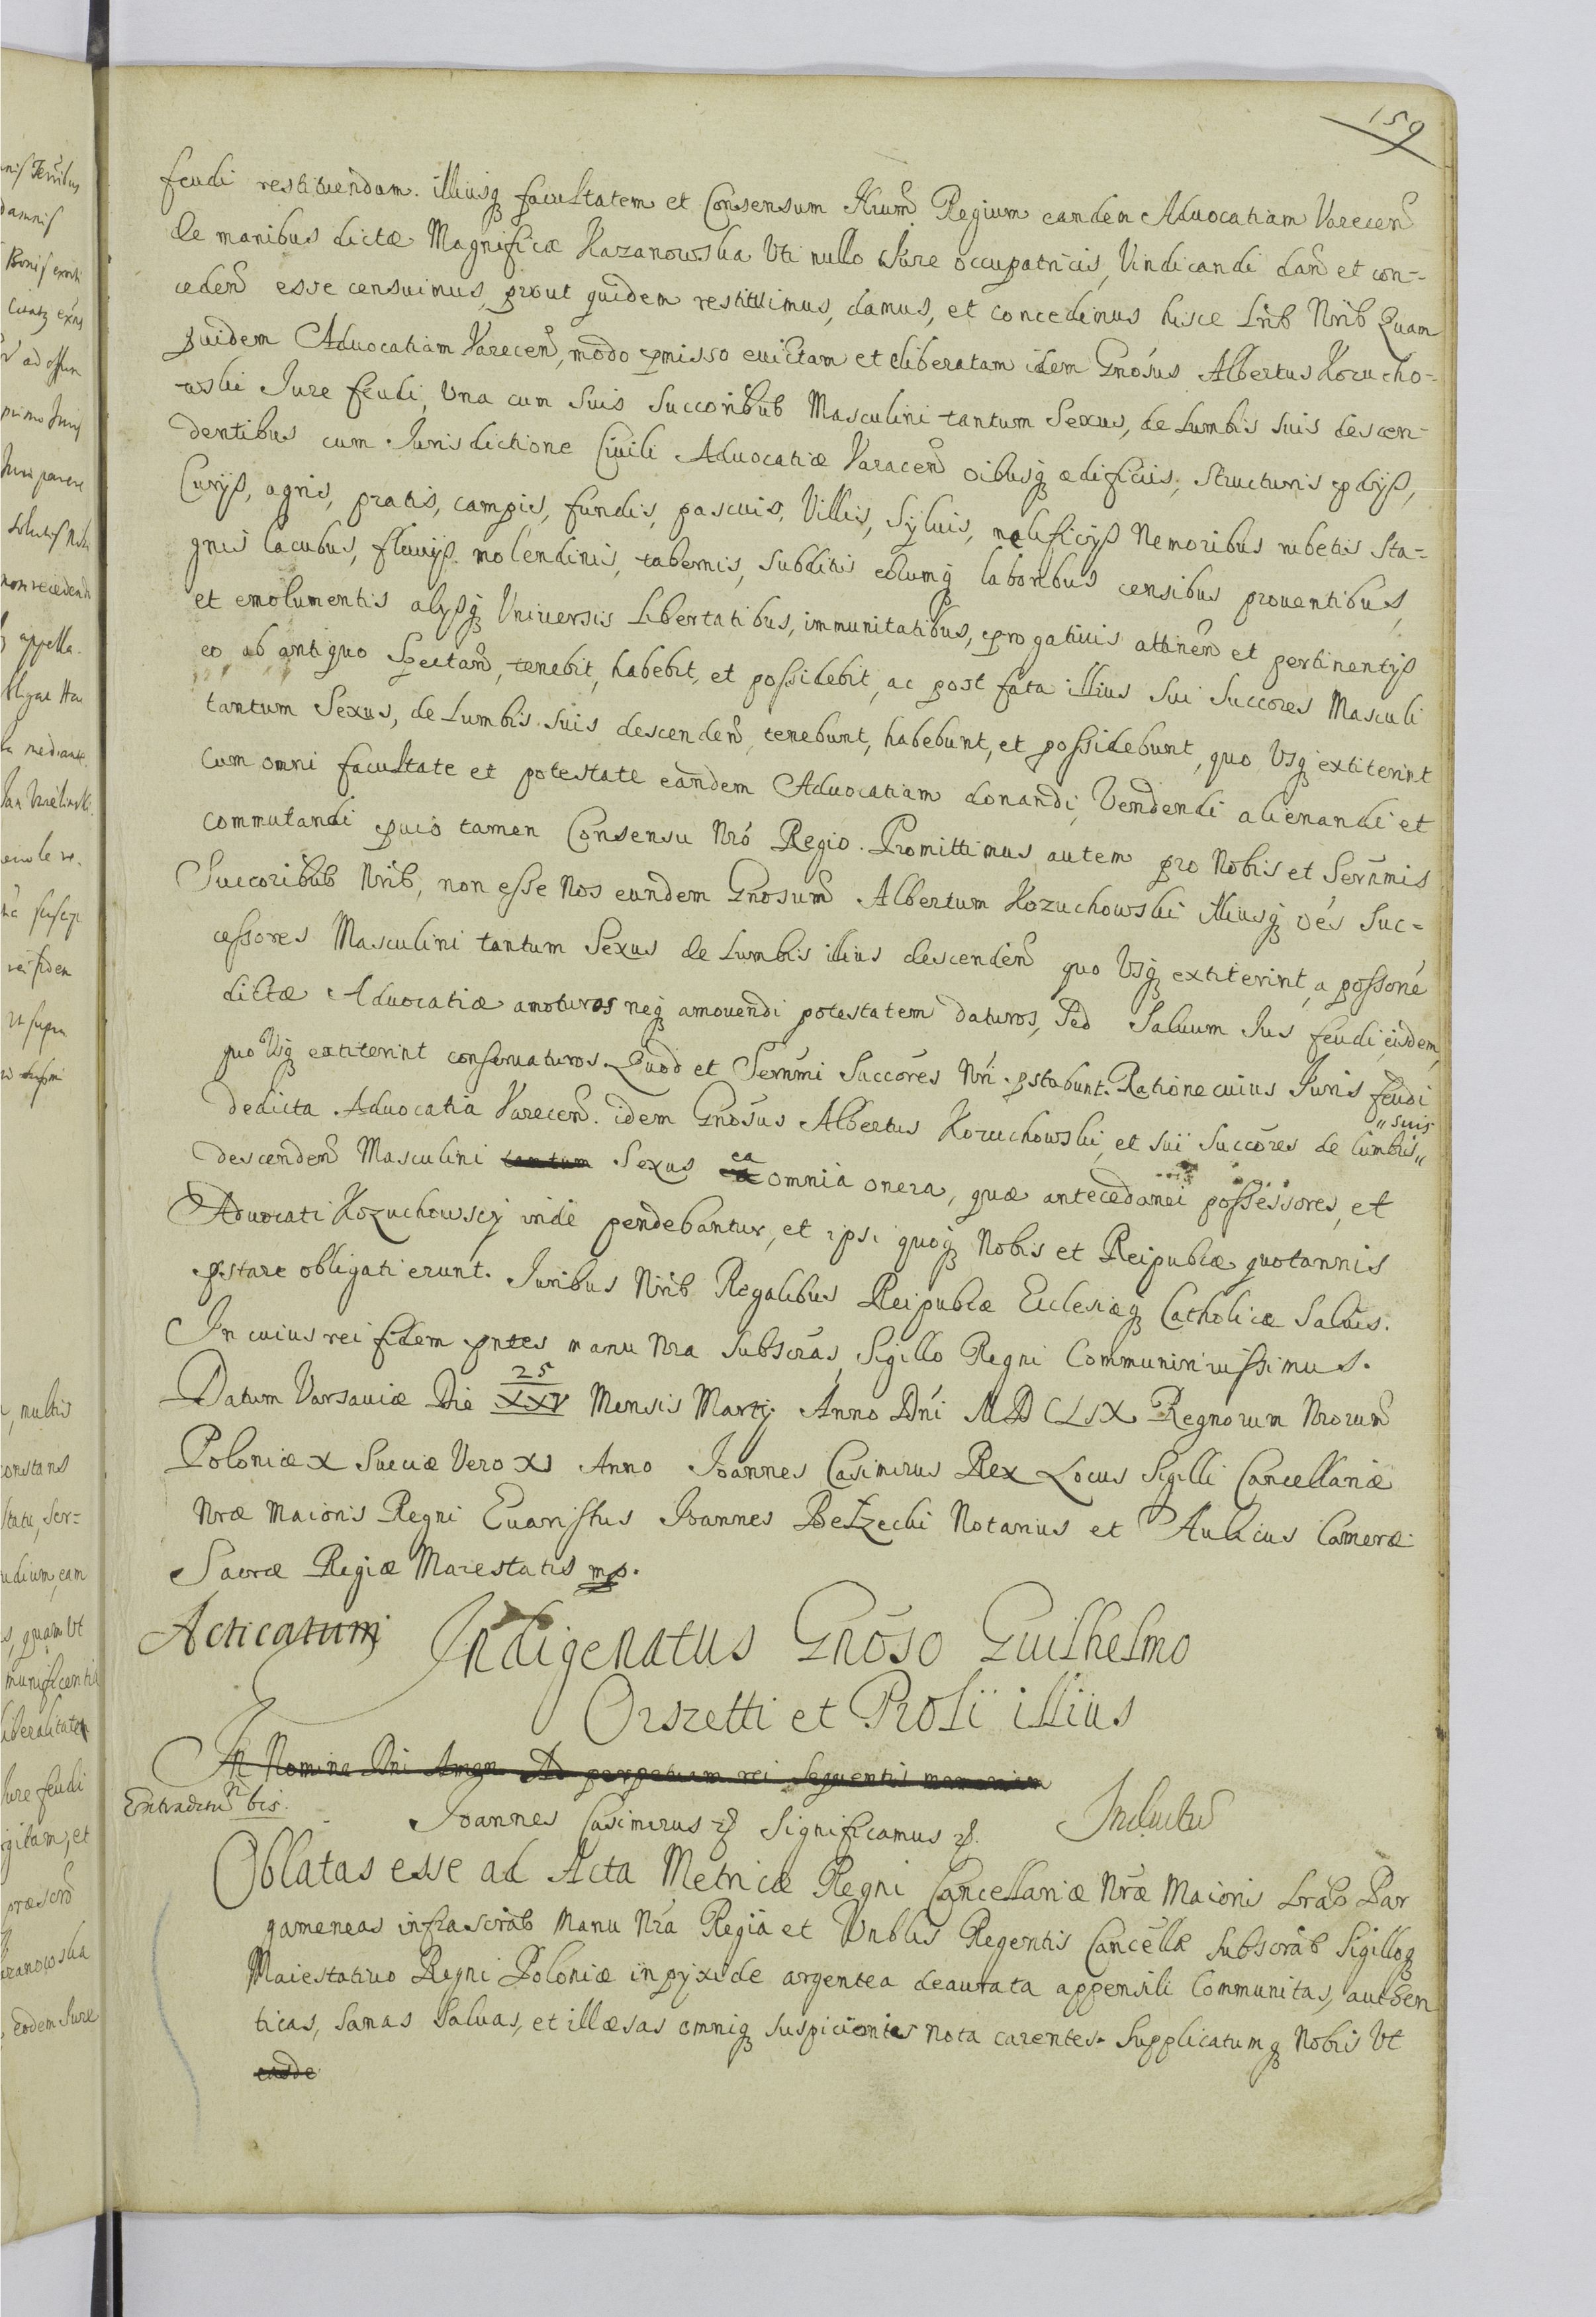 159
feudi restituendam. illiusq facultatem et Consensum Nrum Regium eandem Advocatiam Varecen
de manibus dictæ Magnificæ Kazanowska Vti nullo Iure occupatricis, Vindicandi dan et con-
ceden esse censuimus, prout quidem restituimus, damus, et concedimus hisce Lrib Nrib Quam
quidem Advocatiam Varecen, modo pmisso euictam et liberatam idem Gnosus Albertus Kozucho-
wski Iure feudi, Vna cum Suis Succoribus Masculini tantum Sexus, de Lumbis Suis descen-
dentibus cum Jurisdictione Ciuili Aduocatiæ Varacen oibusq ædificiis, Structuris pdijs,
Curijs, agris, pratis, campis, fundis, pascuis, Villis, Syluis, melificijs Nemoribus rubetis Sta-
gnis lacubus, fluuijs molendinis, tabernis, Subditis eorumq laboribus censibus prouentibus,
et emolumentis alijsq Vniuersis Libertatibus, immunitatibus, progatiuis attinen et pertinentijs
eo ab antiquo Spectan, tenebit, habebit, et possidebit, ac post fata illius Sui Succores Masculi
tantum Sexus, de Lumbis Suis descenden, tenebunt, habebunt, et possidebunt, quo Vsq extiterint
Cum omni facultate et potestate eandem Aduocatiam donandi, Vendendi alienandi et
commutandi puio tamen Consensu Nro Regio. Promittimus autem pro Nobis et Sernmis
Succoribus Nrib, non esse Nos eundem Gnosum Albertum Kozuchowski illiusq oes Suc-
cessores Masculini tantum Sexus de Lumbis illius descenden quo Vsq extiterint, a possone
dictæ Aduocatiæ amoturos neq amouendi potestatem daturos, Sed Saluum Ius feudi eisdem,
quo Vsq extiterint conseruaturos. Quod et Sernmi Succores Nri pstabunt. Ratione cuius Iuris feudi
dedicta Aduocatia Varecen. idem Gnosus Albertus Kozuchowski, et sui Succores de Lumbis " suis
descenden Masculini tantum Sexus ea omnia onera, quæ antecedanei possessores, et
Aduocati Kozuchowscy inde pendebantur, et ipsi quoq Nobis et Reipublæ quotannis
pstare obligati erunt. Iuribus Nrib Regalibus Reipublæ Ecclesiæq Catholicæ Saluis.
In cuius rei fidem pntes manu Nra Subscras, Sigillo Regni Communiri iussimus.
Datum Varsauiæ Die 25 XXV Mensis Martij Anno Dni MDCLIX Regnorum Nrorum
Poloniæ X Sueciæ Vero XI Anno Ioannes Casimirus Rex Locus Sigilli Cancellariæ
Nræ Maioris Regni Euaristus Ioannes Bełzecki Notarius et Aulicus Cameræ
Sacræ Regiæ Maiestatis mp.
Acticatum Indigenatus Gnoso Guilhelmo
Orszetti et Proli illius
In Nomine Dni Amen Ad perpetuam rei Sequentis memoriam
Extraditum bis. Ioannes Casimirus Significamus Inductum
Oblatas esse ad Acta Metricæ Regni Cancellariæ Nræ Maioris Lrab Par
gameneas infrascrab Manu Nra Regia et Vnblis Regentis Cancellæ Subscrab Sigilloq
Maiestatiuo Regni Poloniæ in pyxide argentea deaurata appensili Communitas, authen
ticas, Sanas Saluas, et illæsas omniq suspicionis nota carentes. Supplicatumq Nobis Vt
easde